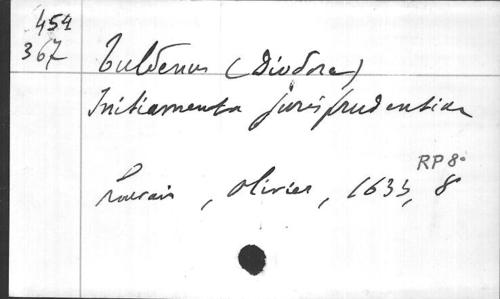 454
367
Tuldenus (Diodore)
Initiamenta jurisprudentiae
RP 8°
Louvain, Olivier, 1633, 8